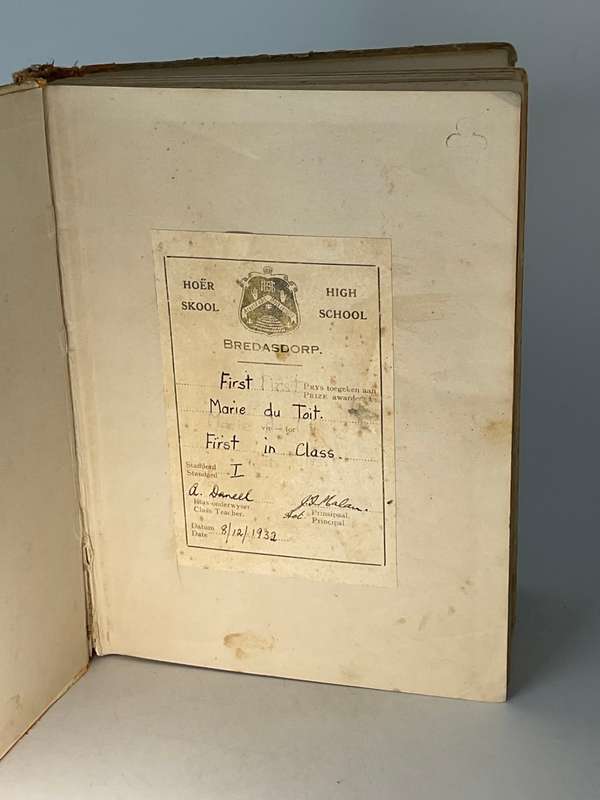 HOËR HIGH
SKOOL SCHOOL
BREDASDORP.
First First PRYS toegeken aan
PRIZE awarded
Marie du Toit.
vir — for
First in Class.
Standerd
Standard I
A. Daneel
Klas-onderwyser.
Class Teacher.
Act. Prinsipaal.
Principal
Datum
Date 8/12/1932